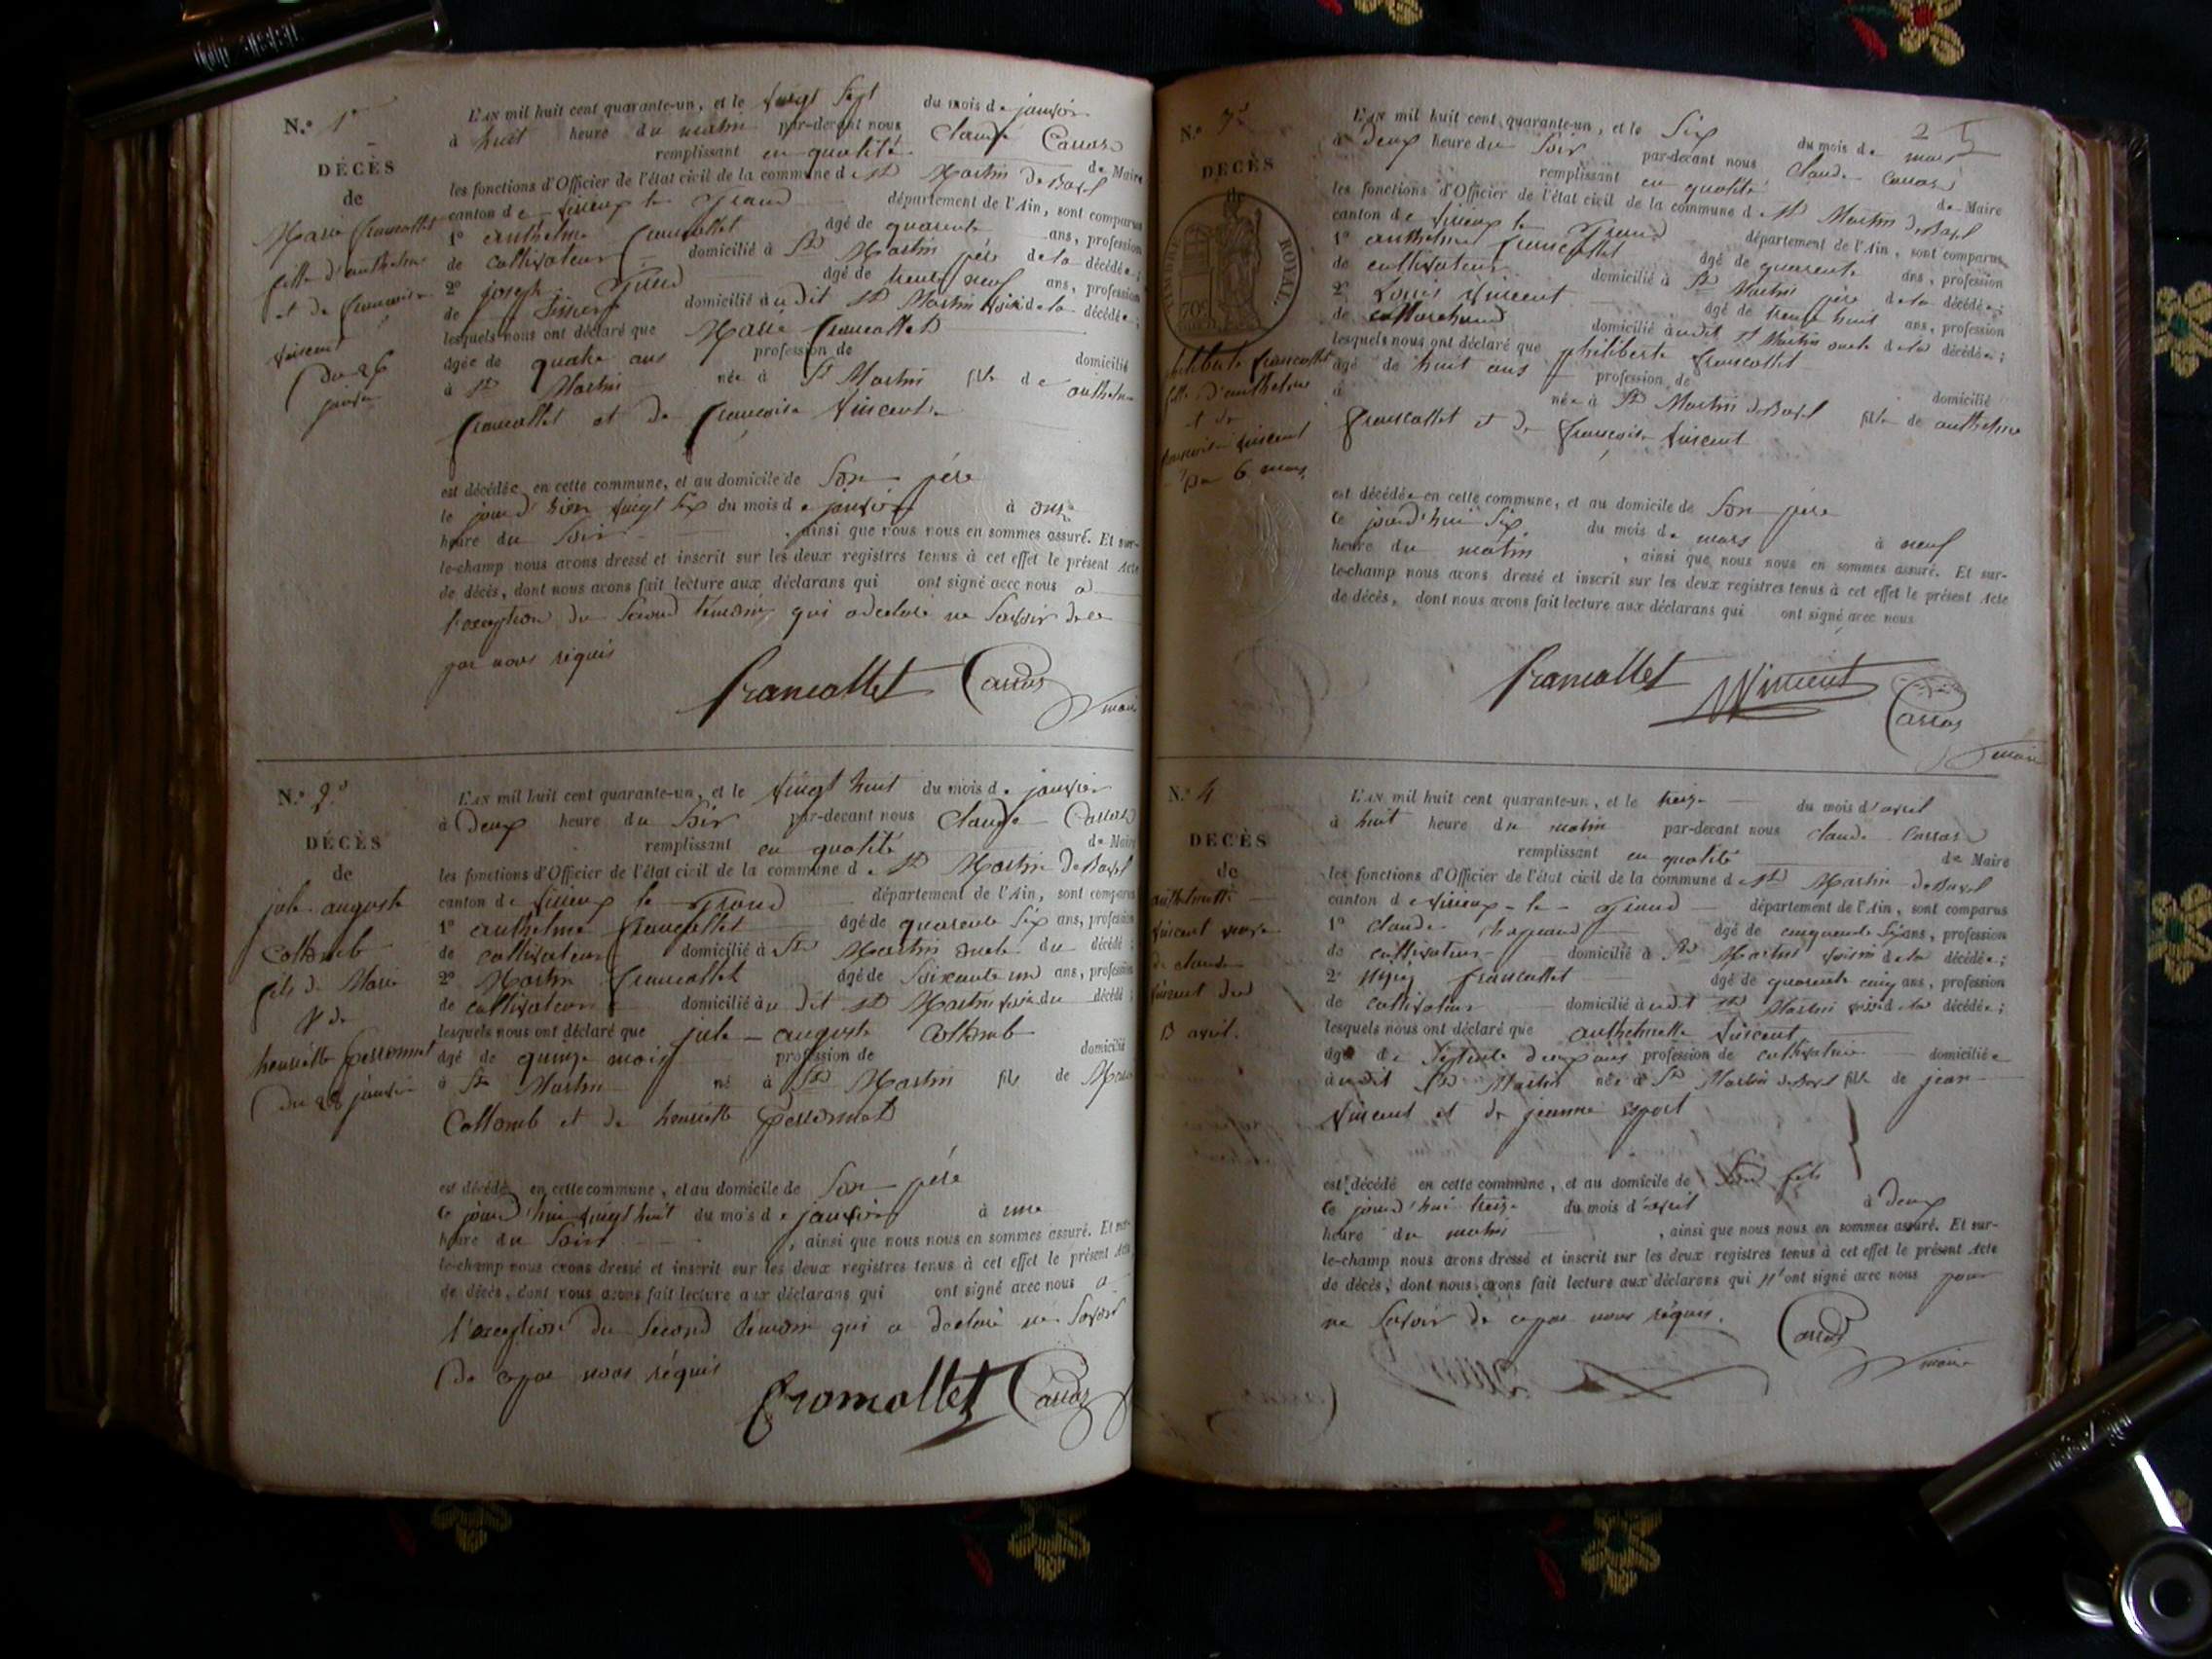 N.° 1er
DÉCÈS
de
Marie francollet
fille d'anthelme
et de francoise
vincent
Du 26
janvier
L'AN mil huit cent quarante-un, et le vingt Sept du mois de janvier
à huit heure du matin par-devant nous Claude Carras
remplissant en qualité de Maire
les fonctions d'Officier de l'état civil de la commune de St Martin de Bavel
canton de virieux le Grand département de l'Ain, sont comparus
1° anthelme francollet âgé de quarente ans, profession
de cultivateur domicilié à St Martin père de la décédée;
2° joseph âgé de trente neuf ans, profession
de domicilié audit St Martin voisin de la décédée;
lesquels nous ont déclaré que Marie francollet
âgée de quatre ans profession de domicilié
à St Martin née à St Martin fille de anthelme
francollet et de françoise vincent
est décédée en cette commune, et au domicile de Son père
le jour d'hier vingt six du mois de janvier à onze
heure du Soir, ainsi que nous nous en sommes assuré. Et sur-
le-champ nous avons dressé et inscrit sur les deux registres tenus à cet effet le présent Acte
de décès, dont nous avons fait lecture aux déclarans qui ont signé avec nous a
l'exception du Second témoin qui a déclaré ne Savoir de ce
par nous réquis
francollet Carras
maire
N.° 2d
DÉCÈS
de
jule auguste
Collomb
fils de Marie
& de
henriette perronnat
Du 28 janvier
L'AN mil huit cent quarante-un, et le vingt huit du mois de janvier
à Deux heure du Soir par-devant nous Claude Carras
remplissant en qualité de Maire
les fonctions d'Officier de l'état civil de la commune de St Martin de Bavel
canton de virieux le Grand département de l'Ain, sont comparus
1° anthelme francollet âgé de quarente Six ans, profession
de cultivateur domicilié à St Martin oncle du décédé;
2° Martin francollet âgé de Soixante un ans, profession
de cultivateur domicilié audit St Martin voisin du décédé;
lesquels nous ont déclaré que jule auguste Collomb
âgé de quinze mois profession de domicilié
à St Martin né à St Martin fils de Marie
Collomb et de henriette perronnat
est décédé en cette commune, et au domicile de Son père
ce jourd'hui vingt huit du mois de janvier à une
heure du Soir, ainsi que nous nous en sommes assuré. Et sur-
le-champ nous avons dressé et inscrit sur les deux registres tenus à cet effet le présent Acte
de décès, dont nous avons fait lecture aux déclarans qui ont signé avec nous a
l'exception du Second témoin qui a déclaré ne Savoir
De ce par nous réquis
francollet Carras
2
N.° 3e
DÉCÈS
de
TIMBRE ROYAL.
70c
philiberte francollet
fille d'anthelme
et de
francoise vincent
Du 6 mars
L'AN mil huit cent quarante-un, et le Six du mois de mars
à Deux heure du Soir par-devant nous Claude Carras
remplissant en qualité de Maire
les fonctions d'Officier de l'état civil de la commune de St Martin de Bavel
canton de virieux le Grand département de l'Ain, sont comparus
1° anthelme francollet âgé de quarente ans, profession
de cultivateur domicilié à St Martin père de la décédée;
2° Louis vincent âgé de trente huit ans, profession
de domicilié audit St Martin oncle de la décédée;
lesquels nous ont déclaré que philiberte francollet
âgé de huit ans profession de domicilié
à née à St Martin de Bavel fille de anthelme
francollet et de françoise vincent
est décédée en cette commune, et au domicile de Son père
ce jourd'hui Six du mois de mars à neuf
heure du matin, ainsi que nous nous en sommes assuré. Et sur-
le-champ nous avons dressé et inscrit sur les deux registres tenus à cet effet le présent Acte
de décès, dont nous avons fait lecture aux déclarans qui ont signé avec nous
francollet Vincent Carras
maire
N.° 4
DÉCÈS
de
anthelmette
vincent veuve
de claude
vincent du
13 avril.
L'AN mil huit cent quarante-un, et le treize du mois d'avril
à huit heure du matin par-devant nous Claude Carras
remplissant en qualité de Maire
les fonctions d'Officier de l'état civil de la commune de St Martin de Bavel
canton de virieux-le-Grand département de l'Ain, sont comparus
1° Claude âgé de cinquante Six ans, profession
de cultivateur domicilié à St Martin voisin de la décédée;
2° francollet âgé de quarente cinq ans, profession
de cultivateur domicilié audit St Martin voisin de la décédée;
lesquels nous ont déclaré que anthelmette vincent
âgé de Septente deux ans profession de cultivatrice domiciliée
audit St Martin née à St Martin de Bavel fille de jean
vincent et de jeanne
est décédé en cette commune, et au domicile de Son fils
ce jourd'hui treize du mois d'avril à deux
heure du matin, ainsi que nous nous en sommes assuré. Et sur-
le-champ nous avons dressé et inscrit sur les deux registres tenus à cet effet le présent Acte
de décès, dont nous avons fait lecture aux déclarans qui n'ont signé avec nous pour
ne Savoir de ce par nous réquis.
Carras
maire